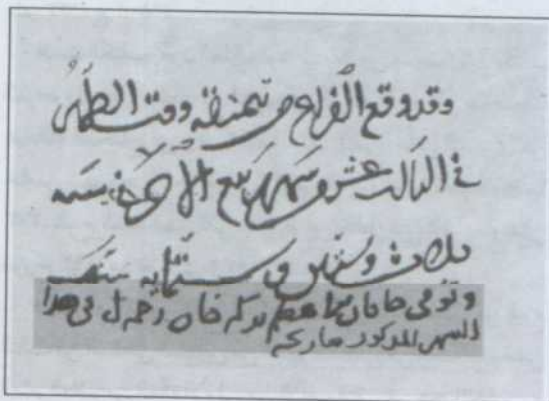 وقد وقع الفراغ من تنميقه وقت الظهر
في الثالث عشر من شهر ربيع الآخر في سنة
ثلاث وستين وستمایه
وتوفى خاقان معظم بركه خان رحمه ل فى هذا
الشهر المذكور